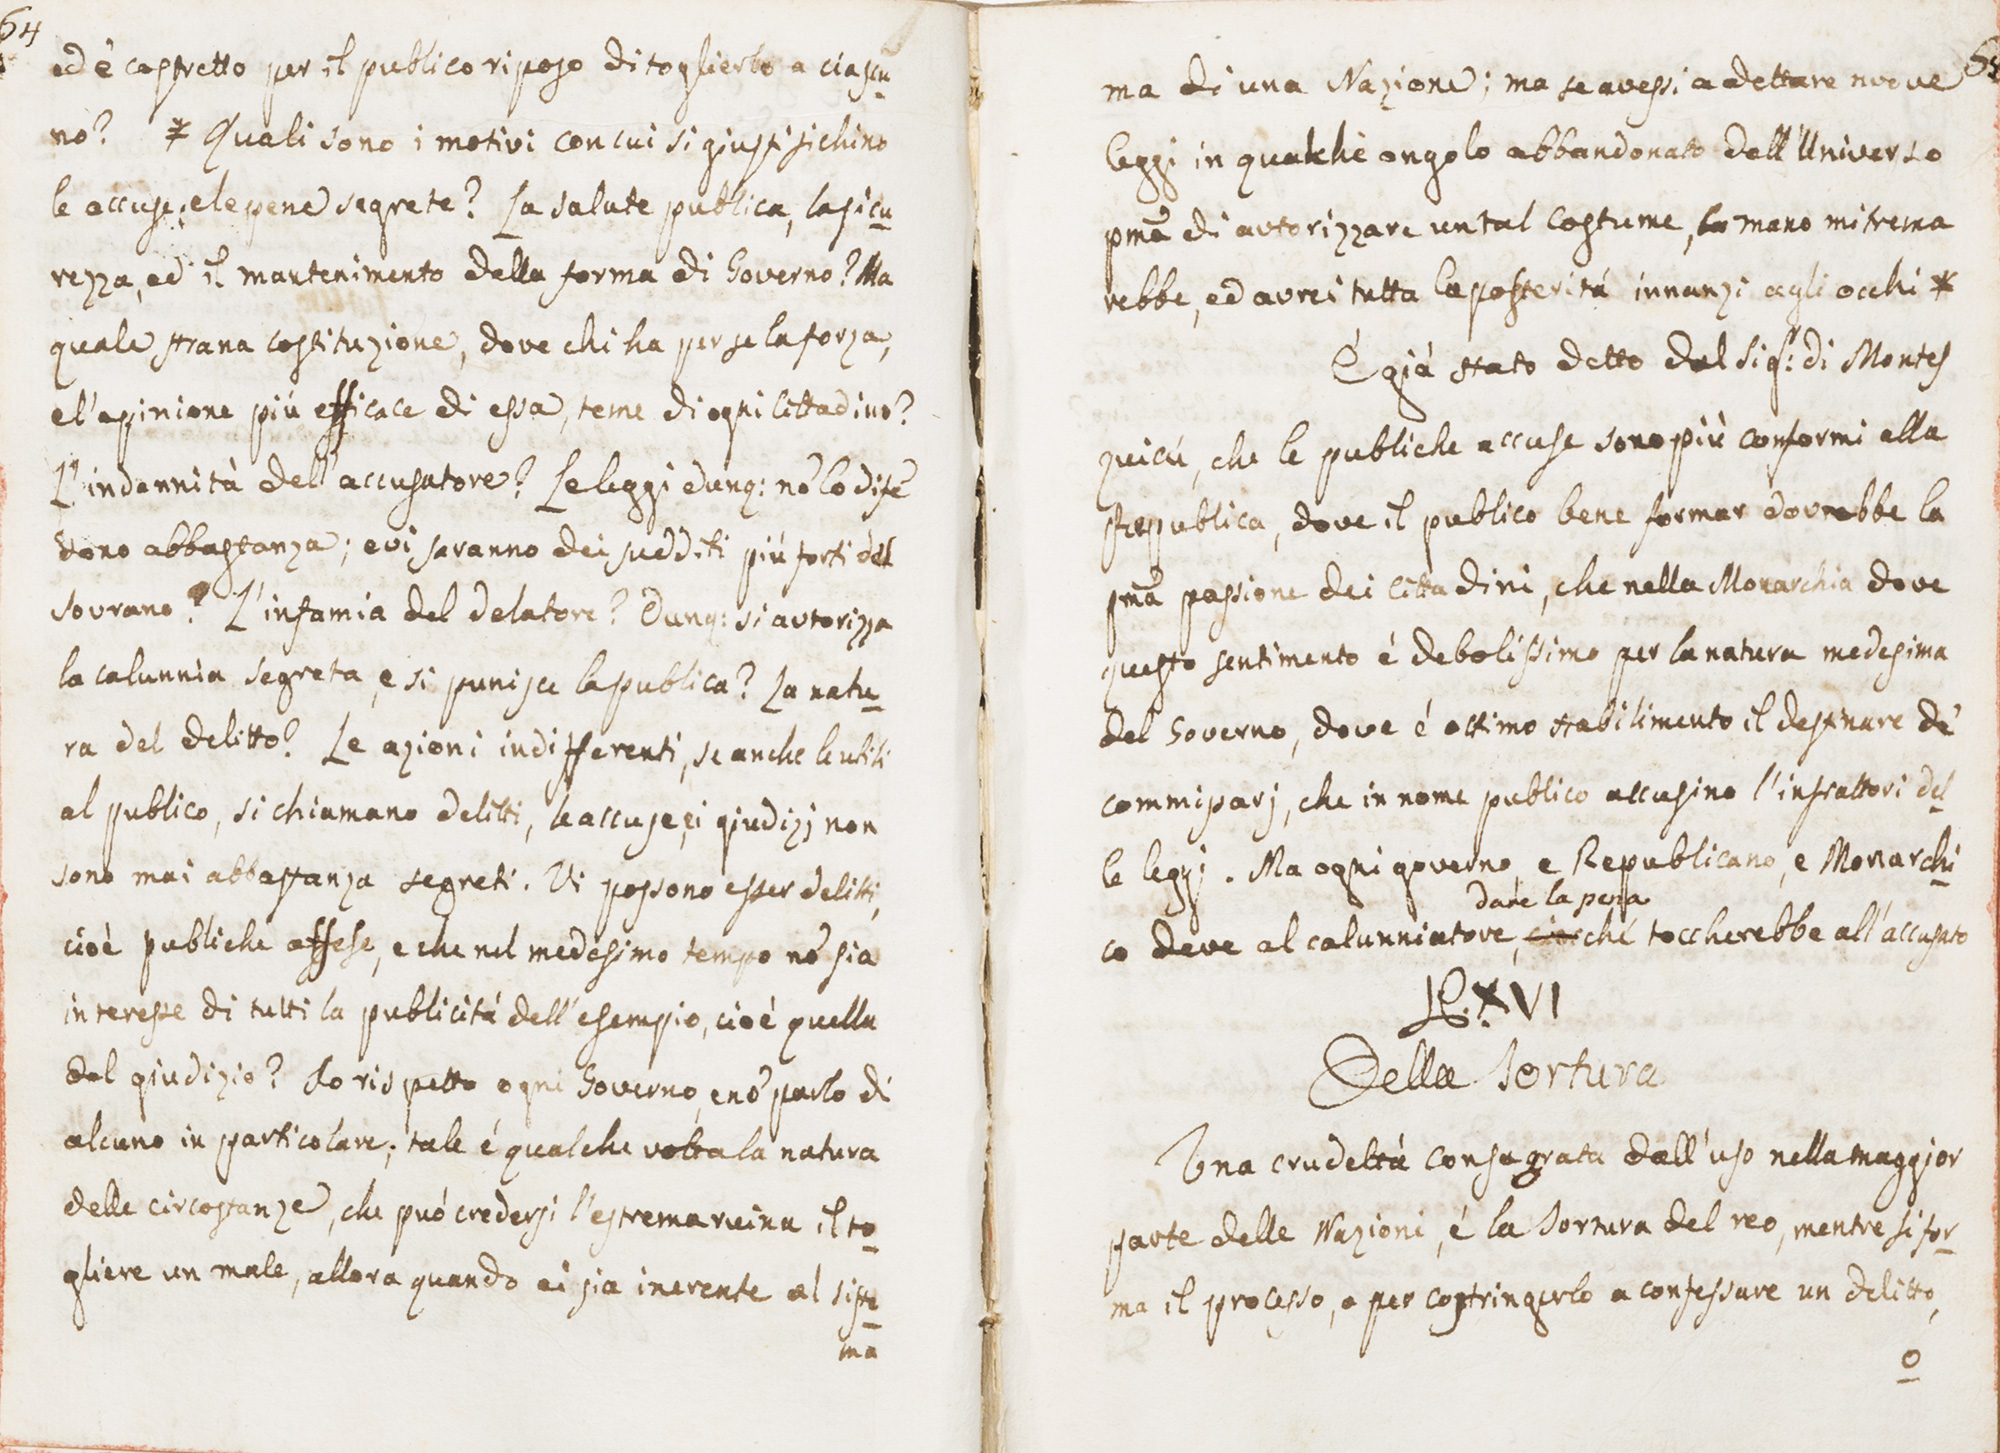 64
ed è costretto per il publico riposo di toglierlo a ciascu
no? * Quali sono i motivi con cui si giustifichino
le accuse, e le pene segrete? La salute publica, la sicu
rezza, ed il mantenimento della forma di Governo? Ma
quale strana costituzione, dove chi ha per se la forza,
e l'opinione più efficace di essa, teme di ogni Cittadino?
L'indennità dell'accusatore? Le leggi dunq: nō lo difē
dono abbastanza; e vi saranno dei sudditi più forti del
Sovrano? L'infamia del delatore? Dunq: si autorizza
la calunnia segreta, e si punisce la publica? La natu
ra del delitto? Le azioni indifferenti, se anche le utili
al publico, si chiamano delitti, le accuse, ei giudizj non
sono mai abbastanza segreti. Vi possono esser delitti,
cioè publiche offese, e che nel medesimo tempo nō sia
interesse di tutti la publicitá dell'esempio, cioé quella
del giudizio? Io rispetto ogni Governo, e nō parlo di
alcuno in particolare; tale é qualche volta la natura
delle circostanze, che puó credersi l'estrema ruina il to
gliere un male, allora quando ei sia inerente al siste
ma
65
ma di una Nazione; ma se avessi a dettare nuove
leggi in qualche angolo abbandonato dell'Universo
pmā di autorizzare un tal costume, la mano mi trema
rebbe, ed avrei tutta la posteritá innanzi agli occhi *
É giá stato detto dal Sig:r di Montes
quieú, che le publiche accuse sono più conformi alla
Republica, dove il publico bene formar dovrebbe la
pmā passione dei Cittadini, che nella Monarchia dove
questo sentimento é debolissimo per la natura medesima
del Governo, dove é ottimo stabilimento il destinare de'
commissarj, che in nome publico accusino l'infrattori del
le leggj. Ma ogni governo, e Republicano, e Monarchi
dare la pena
co deve al calunniatore, cioé ché toccherebbe all'accusato
§. XVI
Della Tortura
Una crudeltá consagrata dall'uso nella maggior
parte delle Nazioni, é la Tortura del reo, mentre si for
ma il processo, o per costringerlo a confessare un delitto,
o